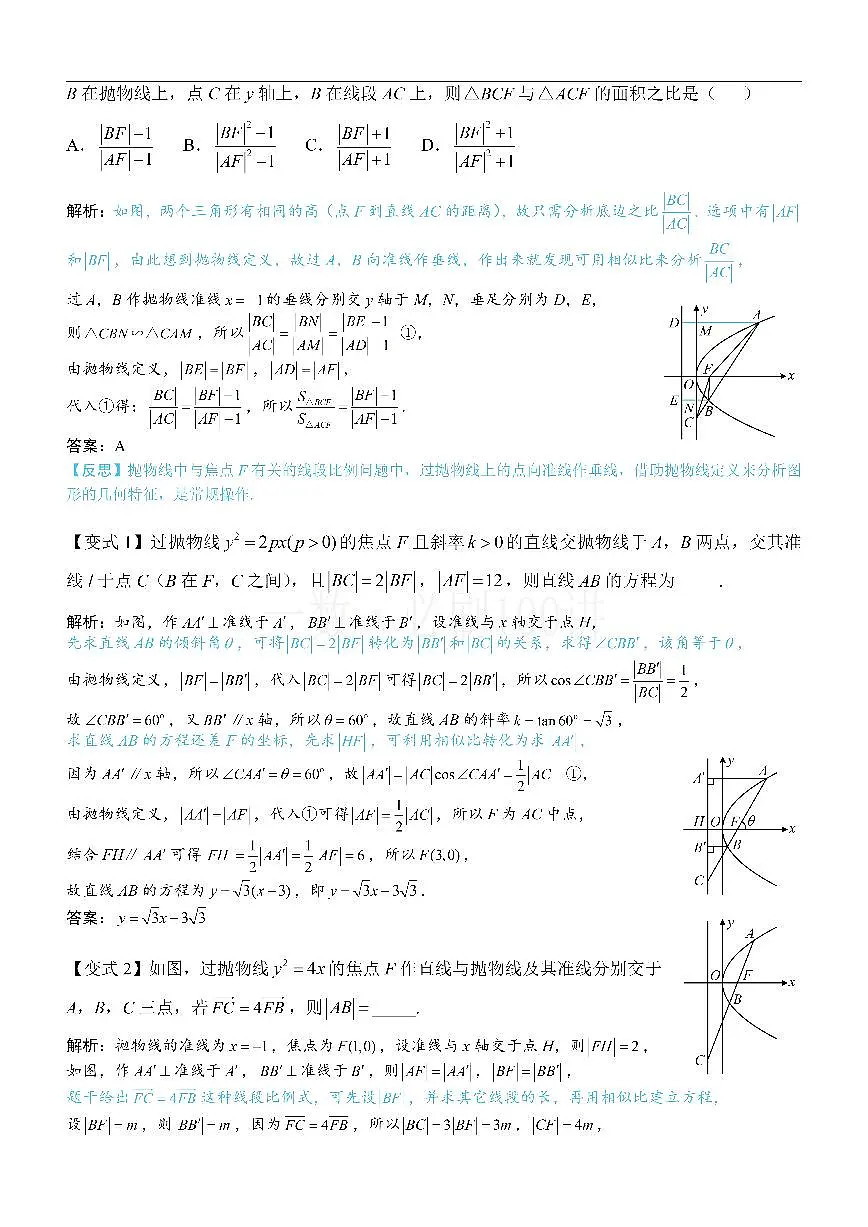 B 在抛物线上，点 C 在 y 轴上，B 在线段 AC 上，则 △BCF 与 △ACF 的面积之比是（　　）
A．|BF|−1 / |AF|−1　B．|BF|²−1 / |AF|²−1　C．|BF|+1 / |AF|+1　D．|BF|²+1 / |AF|²+1
解析：如图，两个三角形有相同的高（点 F 到直线 AC 的距离），故只需分析底边之比 |BC|/|AC|，选项中有 |AF|
和 |BF|，由此想到抛物线定义，故过 A，B 向准线作垂线，作出来就发现可用相似比来分析 |BC|/|AC|，
过 A，B 作抛物线准线 x = −1 的垂线分别交 y 轴于 M，N，垂足分别为 D，E，
则 △CBN∽△CAM，所以 |BC|/|AC| = |BN|/|AM| = (|BE|−1)/(|AD|−1) ①，
由抛物线定义，|BE| = |BF|，|AD| = |AF|，
代入①得：|BC|/|AC| = (|BF|−1)/(|AF|−1)，所以 S△BCF/S△ACF = (|BF|−1)/(|AF|−1)．
答案：A
y
D M A
F
O x
E N B
C
【反思】抛物线中与焦点 F 有关的线段比例问题中，过抛物线上的点向准线作垂线，借助抛物线定义来分析图
形的几何特征，是常规操作.
【变式 1】过抛物线 y² = 2px(p > 0) 的焦点 F 且斜率 k > 0 的直线交抛物线于 A，B 两点，交其准
线 l 于点 C（B 在 F，C 之间），且 |BC| = 2|BF|，|AF| = 12，则直线 AB 的方程为_____.
解析：如图，作 AA′⊥准线于 A′，BB′⊥准线于 B′，设准线与 x 轴交于点 H，
先求直线 AB 的倾斜角 θ，可将 |BC| = 2|BF| 转化为 |BB′| 和 |BC| 的关系，求得 ∠CBB′，该角等于 θ，
由抛物线定义，|BF| = |BB′|，代入 |BC| = 2|BF| 可得 |BC| = 2|BB′|，所以 cos∠CBB′ = |BB′|/|BC| = 1/2，
故 ∠CBB′ = 60°，又 BB′ // x 轴，所以 θ = 60°，故直线 AB 的斜率 k = tan 60° = √3，
求直线 AB 的方程还差 F 的坐标，先求 |HF|，可利用相似比转化为求 |AA′|，
因为 AA′ // x 轴，所以 ∠CAA′ = θ = 60°，故 |AA′| = |AC|cos∠CAA′ = 1/2|AC| ①，
由抛物线定义，|AA′| = |AF|，代入①可得 |AF| = 1/2|AC|，所以 F 为 AC 中点，
结合 FH // AA′ 可得 |FH| = 1/2|AA′| = 1/2|AF| = 6，所以 F(3,0)，
故直线 AB 的方程为 y = √3(x−3)，即 y = √3x − 3√3．
答案：y = √3x − 3√3
y
A′ A
H O F θ x
B′ B
C
【变式 2】如图，过抛物线 y² = 4x 的焦点 F 作直线与抛物线及其准线分别交于
A，B，C 三点，若 FC⃗ = 4FB⃗，则 |AB| = _____.
y
A
O F x
B
C
解析：抛物线的准线为 x = −1，焦点为 F(1,0)，设准线与 x 轴交于点 H，则 |FH| = 2，
如图，作 AA′⊥准线于 A′，BB′⊥准线于 B′，则 |AF| = |AA′|，|BF| = |BB′|，
题干给出 FC⃗ = 4FB⃗ 这种线段比例式，可先设 |BF|，并求其它线段的长，再用相似比建立方程，
设 |BF| = m，则 |BB′| = m，因为 FC⃗ = 4FB⃗，所以 |BC| = 3|BF| = 3m，|CF| = 4m，